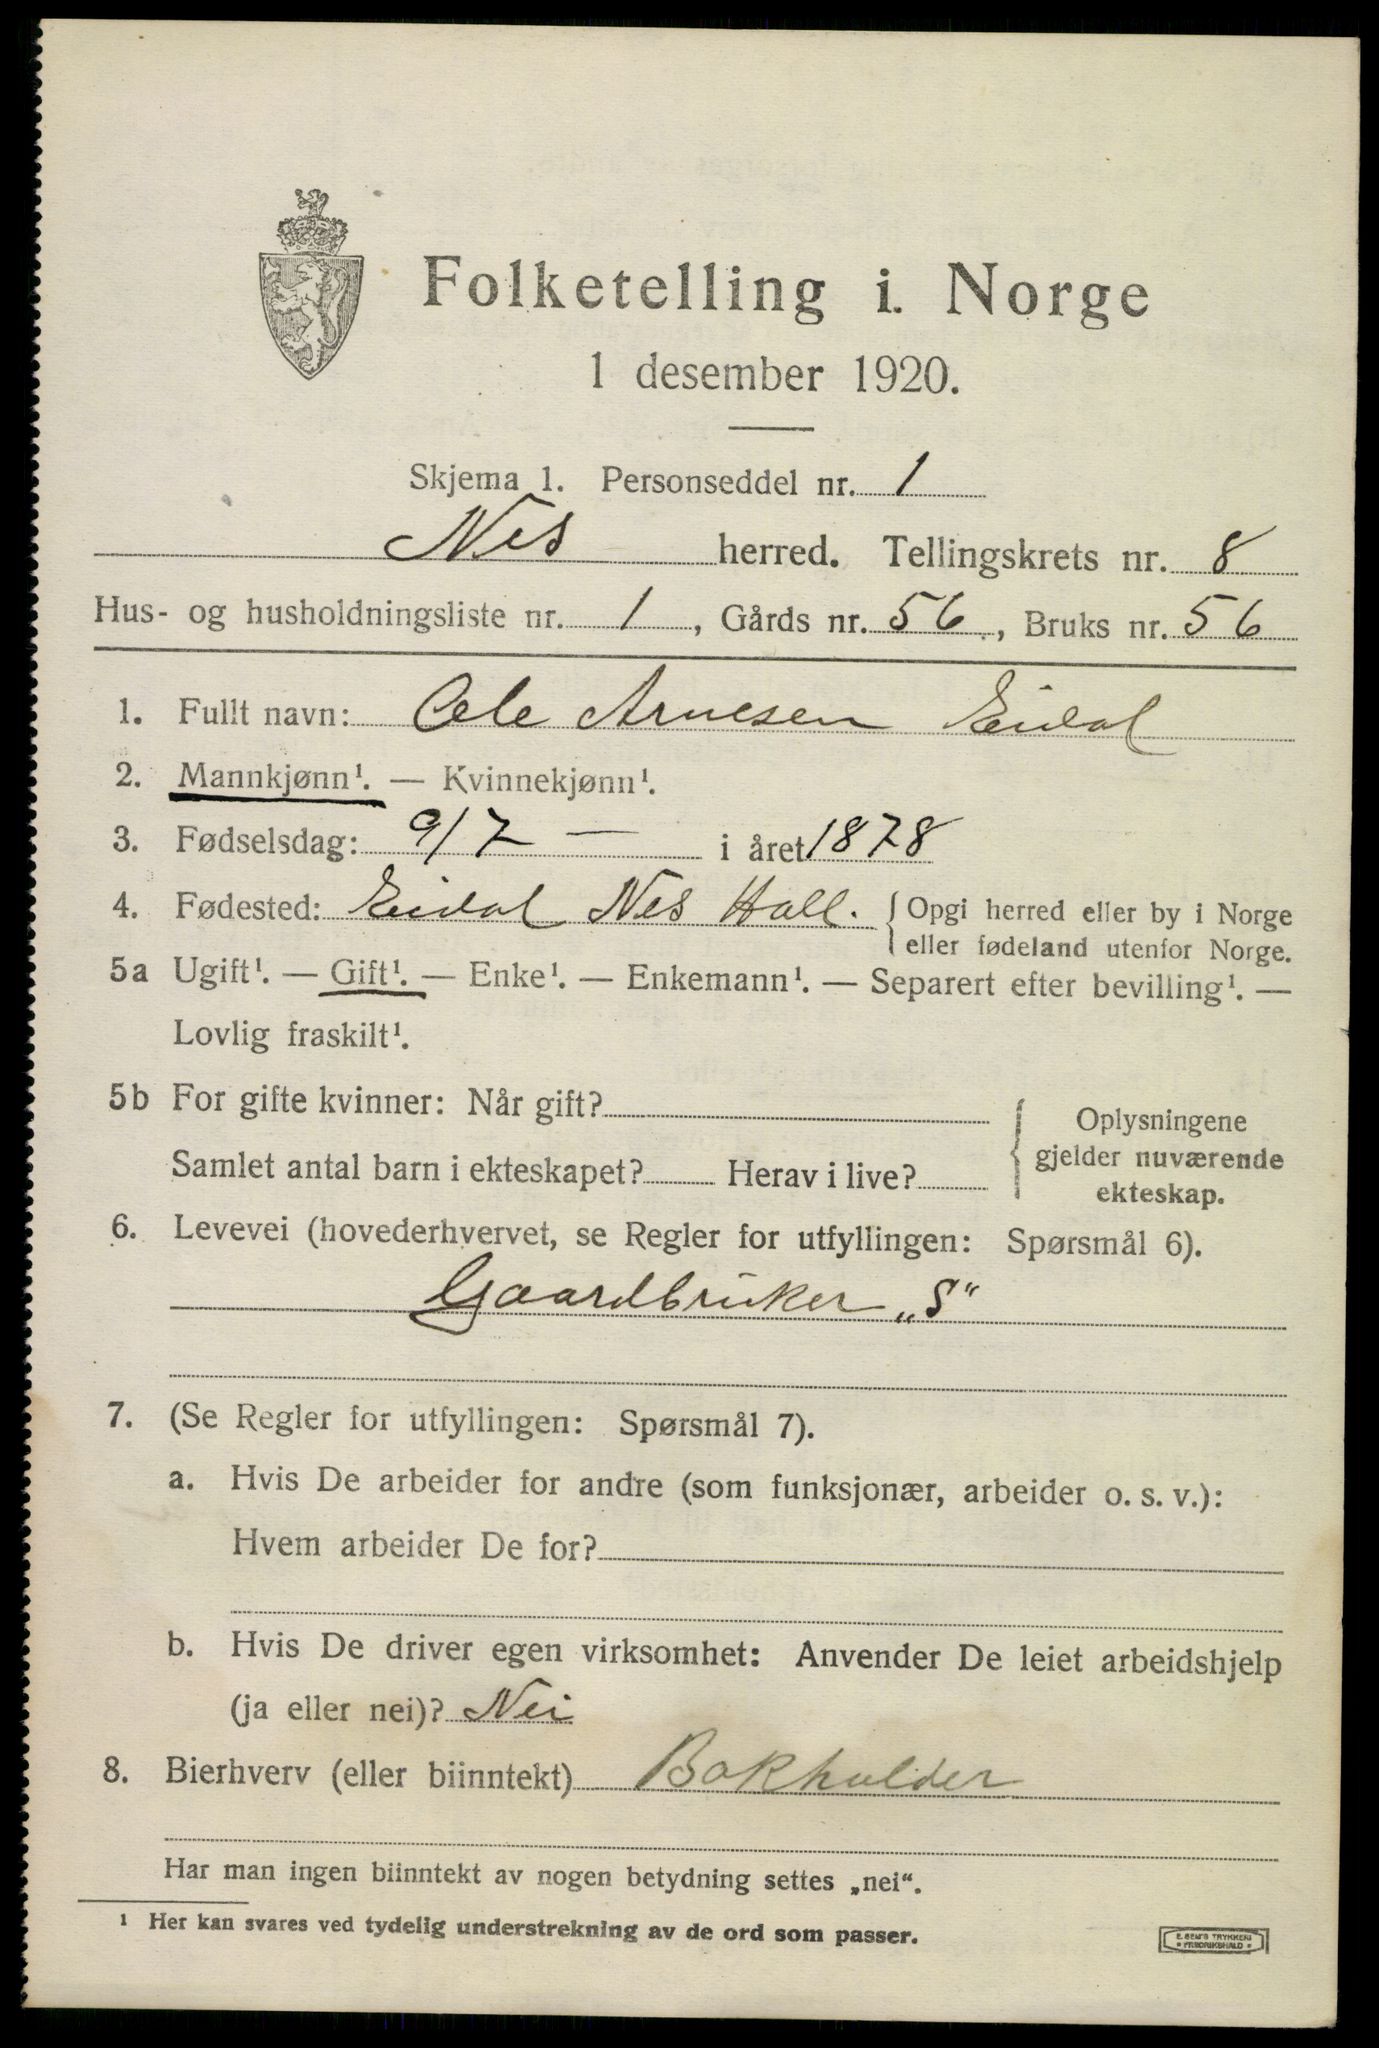 Folketelling i Norge
1 desember 1920.
Skjema 1. Personseddel nr. 1
Nes herred. Tellingskrets nr. 8
Hus- og husholdningsliste nr. 1, Gårds nr. 56, Bruks nr. 56
1. Fullt navn: Ole Arnesen Eidal
2. Mannkjønn¹. — Kvinnekjønn¹.
3. Fødselsdag: 9/7 — i året 1878
4. Fødested: Eidal Nes Hall. { Opgi herred eller by i Norge
eller fødeland utenfor Norge.
5a Ugift¹. — Gift¹. — Enke¹. — Enkemann¹. — Separert efter bevilling¹. —
Lovlig fraskilt¹.
5b For gifte kvinner: Når gift?
Samlet antal barn i ekteskapet? Herav i live?
Oplysningene
gjelder nuværende
ekteskap.
6. Levevei (hovederhvervet, se Regler for utfyllingen: Spørsmål 6).
Gaardbruker „S“
7. (Se Regler for utfyllingen: Spørsmål 7).
a. Hvis De arbeider for andre (som funksjonær, arbeider o. s. v.):
Hvem arbeider De for?
b. Hvis De driver egen virksomhet: Anvender De leiet arbeidshjelp
(ja eller nei)? Nei
8. Bierhverv (eller biinntekt) Bokholder
Har man ingen biinntekt av nogen betydning settes „nei“.
¹ Her kan svares ved tydelig understrekning av de ord som passer.
E. SEM'S TRYKKERI
• FREDRIKSHALD •